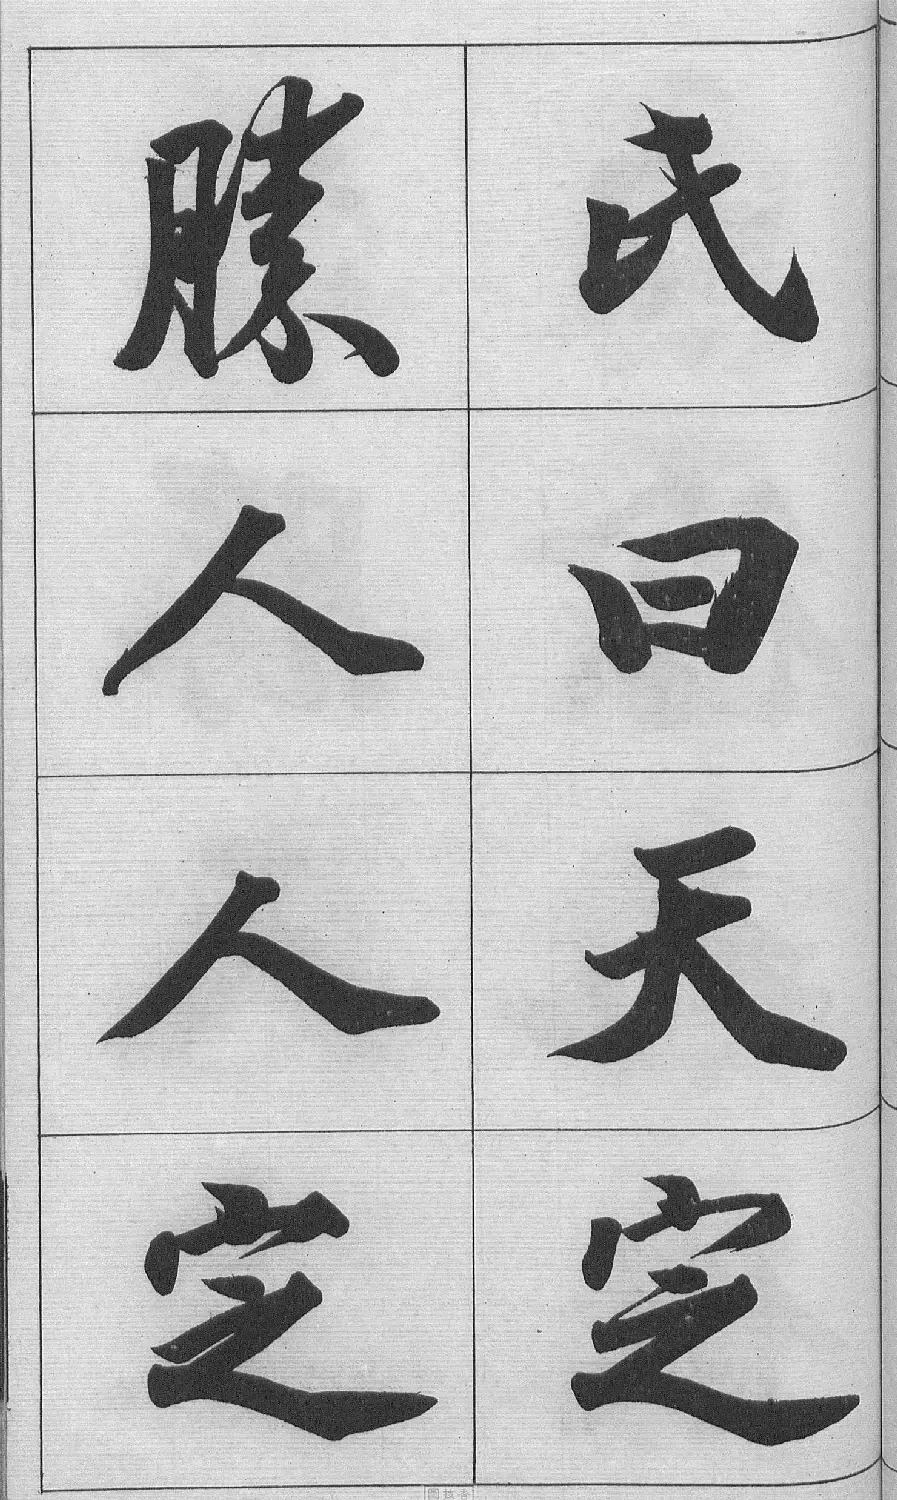 氏曰天定
勝人人定